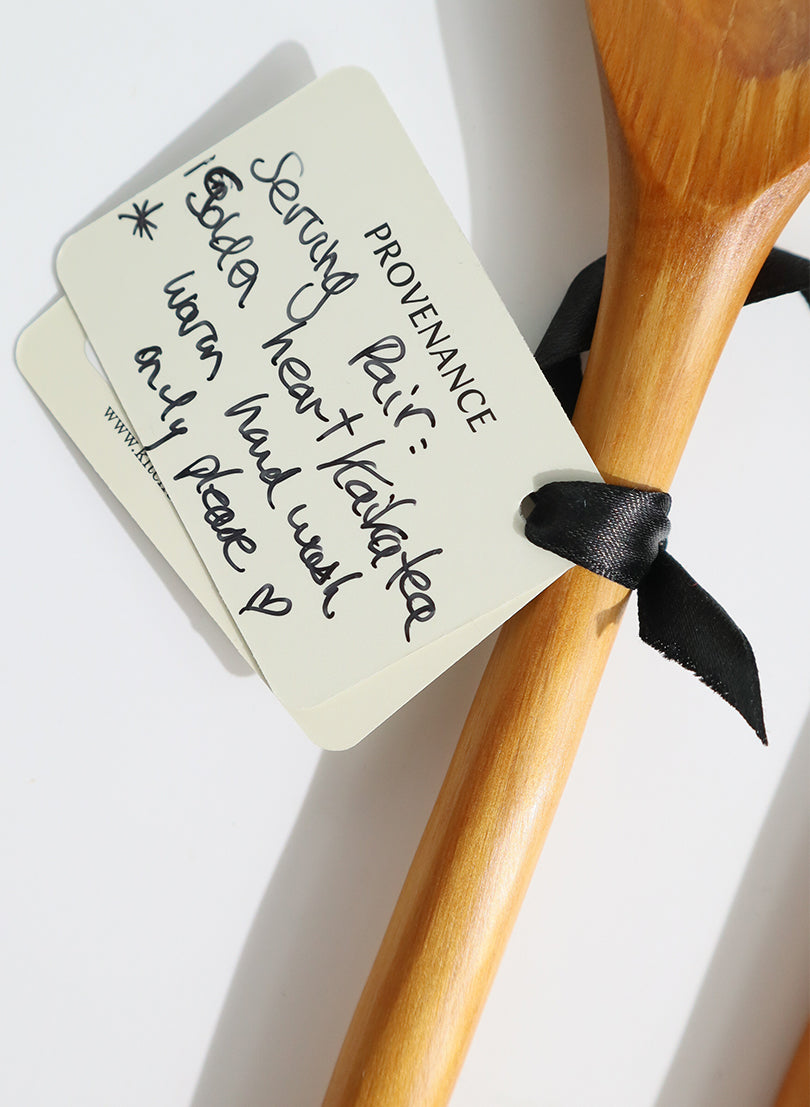 PROVENANCE
Serving Pair:
Golden heart Kaikatea
* warm hand wash
only please ♡
www.kitch